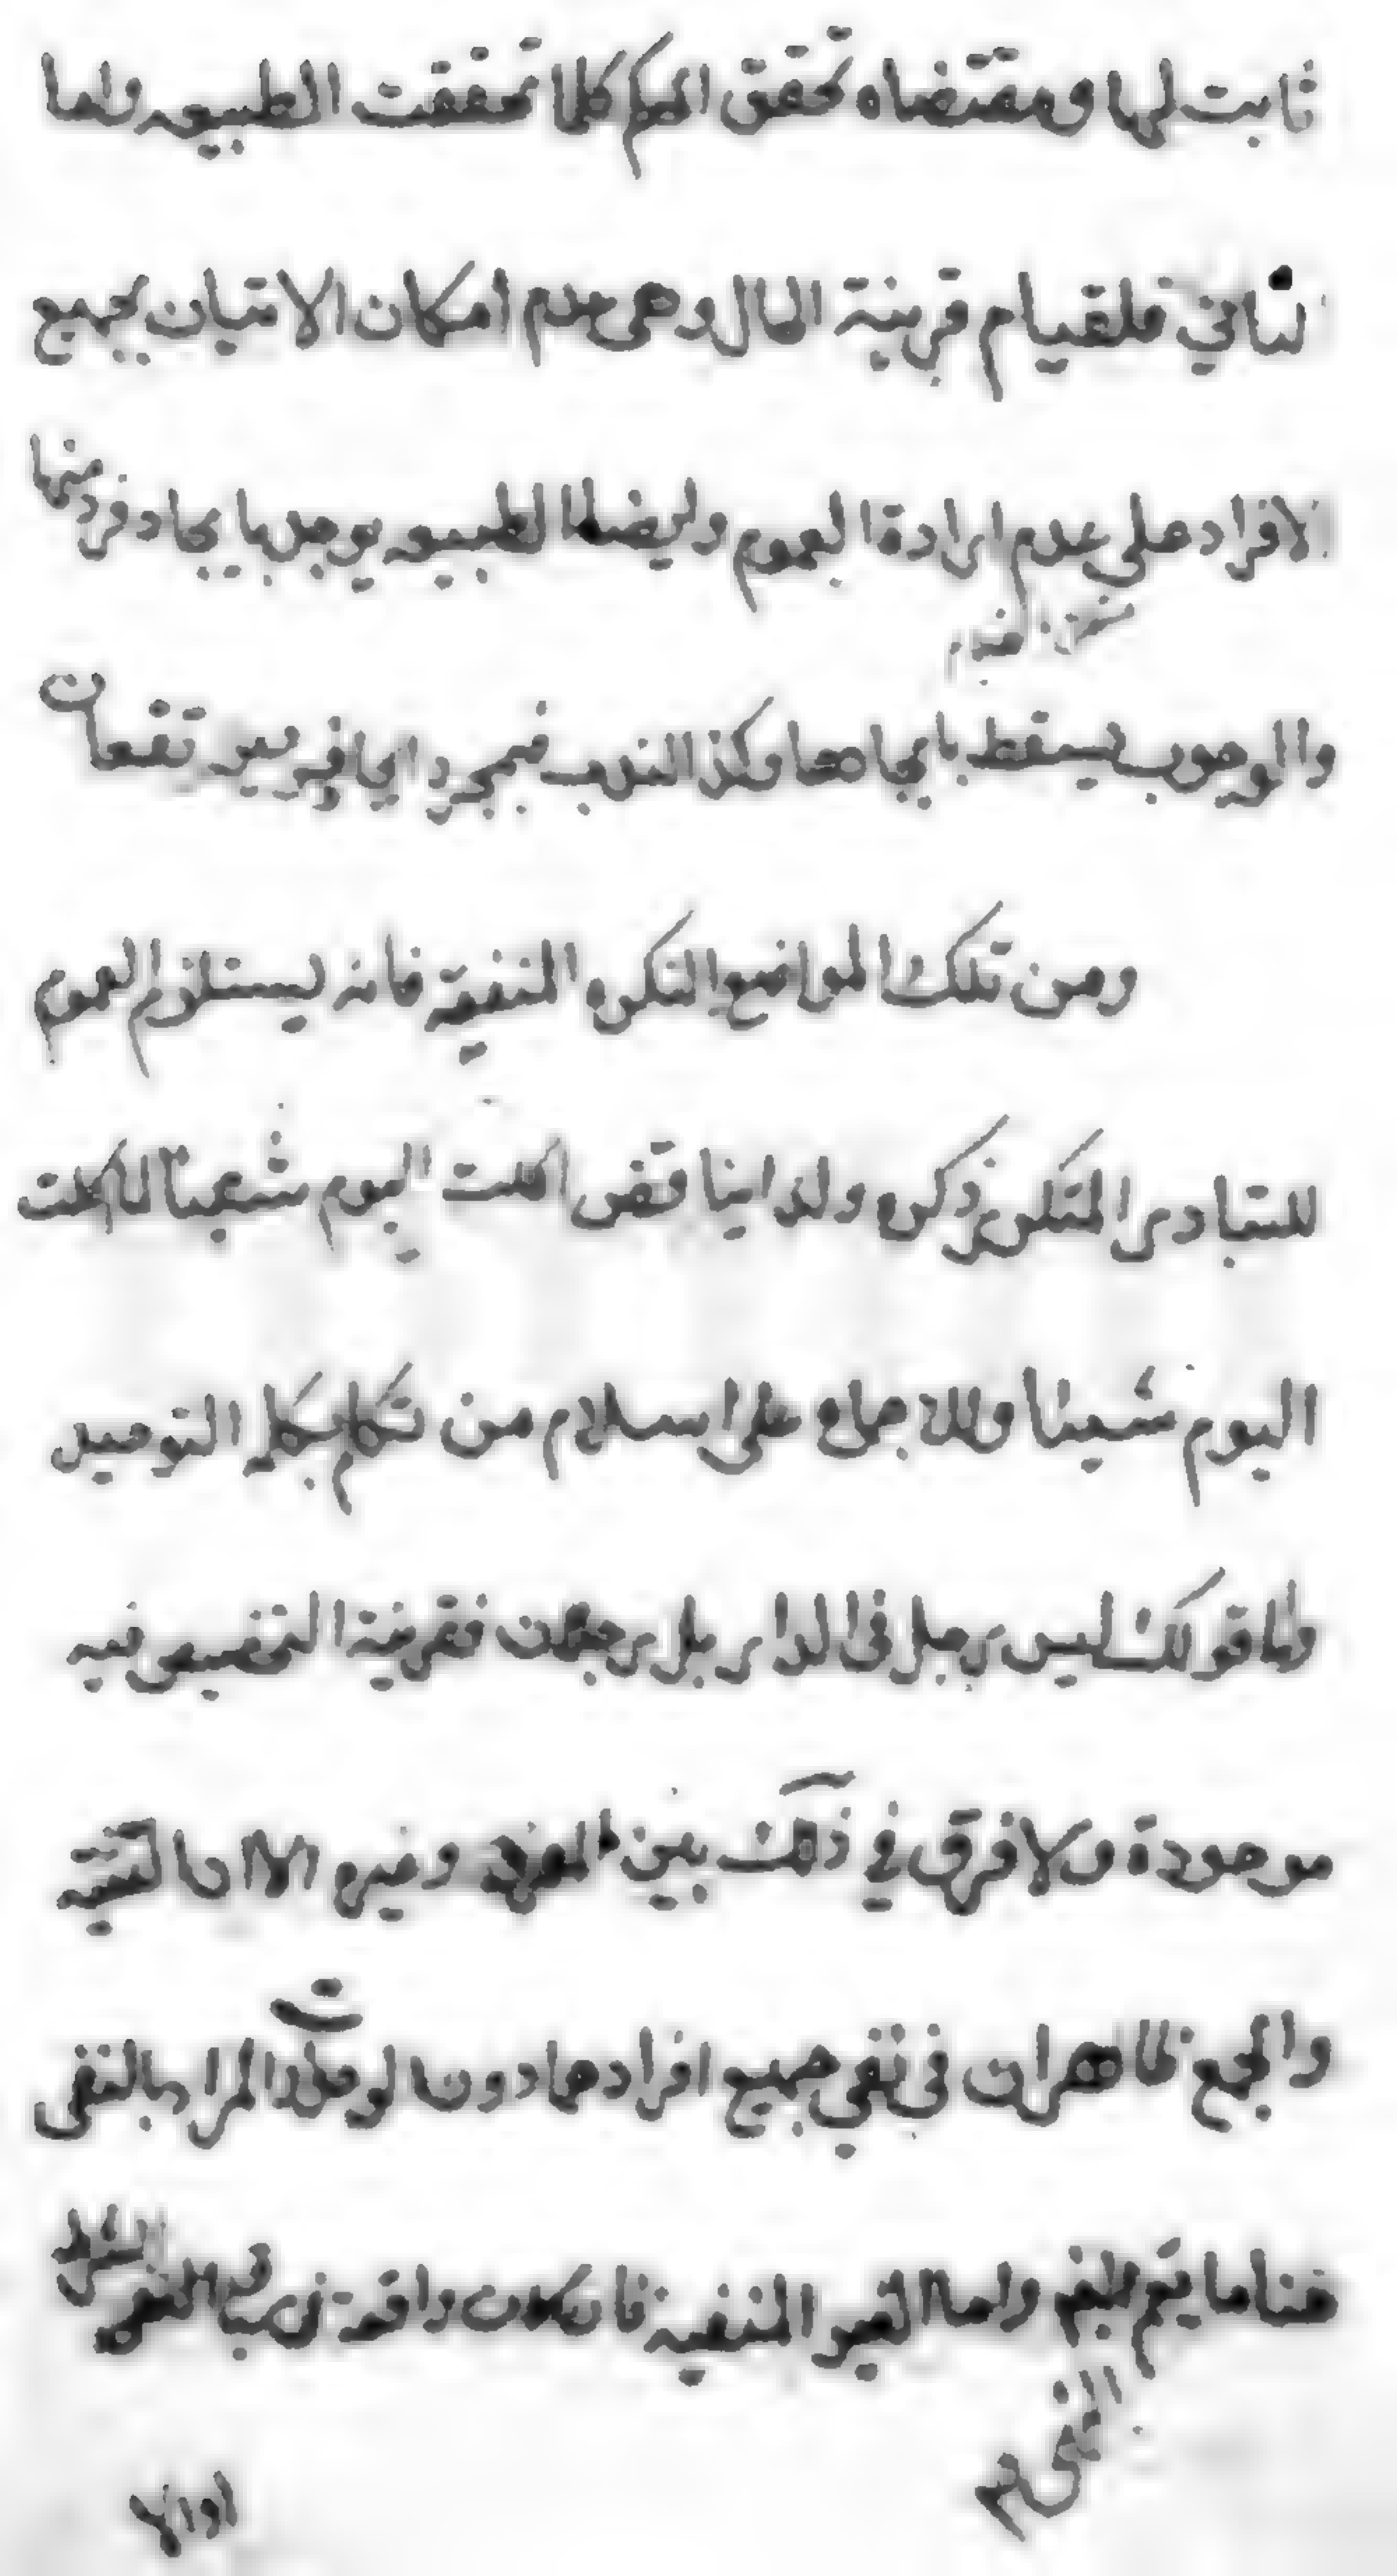 ثابت لها ومقتضاه تحقق الحكم كلما تحققت الطبيعه واما
الثاني فلقيام قرينة الحال وهى عدم امكان الاتيان بجميع
الافراد على عدم ارادة العموم وايضا الطبيعه يوجد بايجاد فرد منها
والوجوب يسقط بايجادها وكذا الندب فبمجرد ايجاد فرد يرتفعان
ومن تلك المواضع النكره المنفية فانه يستلزم العموم
للتبادر المتكرر ذكره ولذا يناقض اكلت اليوم شيئا ما اكلت
اليوم شيئا وللاجماع على اسلام من تكلم بكلمة التوحيد
واما قولك ليس رجل في الدار بل رجلان فقرينة التخصيص فيه
موجودة ولا فرق في ذلك بين المفرد وغيره الا ان التثنية
والجمع ظاهران في نفي جميع افرادهما دون الوحدات المراد بالنفى
هنا ما يتم النهى واما الغير المنفية فان كانت واقعة في سياق
اولا